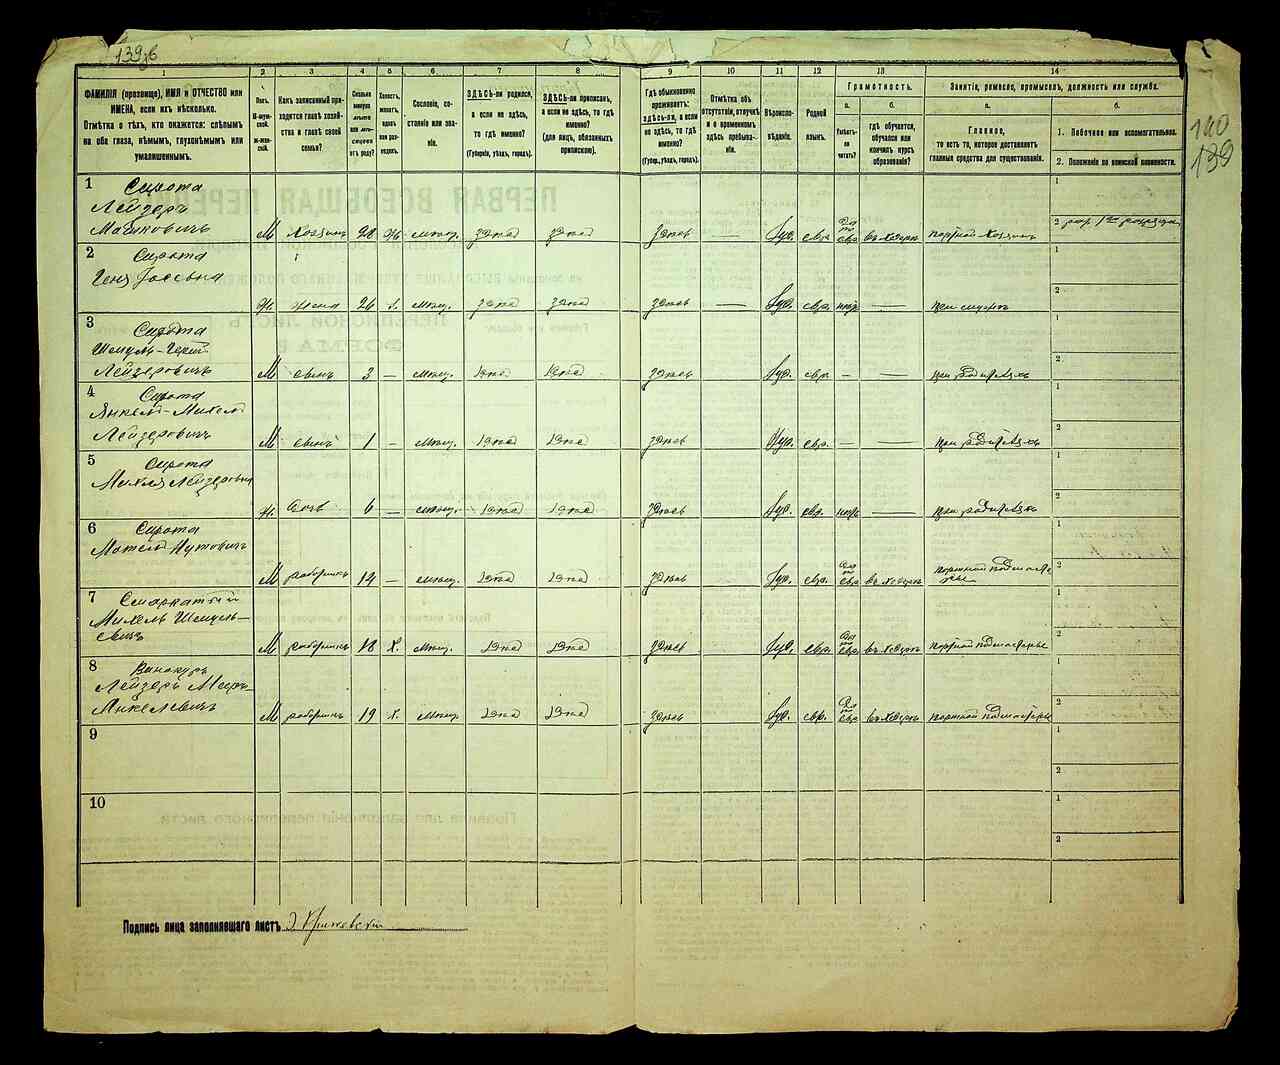 139
140
139
1
2
3
4
5
6
7
8
9
10
11
12
13
14
ФАМИЛІЯ (прозвище), ИМЯ и ОТЧЕСТВО или
ИМЕНА, если ихъ нѣсколько.
Отмѣтка о тѣхъ, кто окажется: слѣпымъ
на оба глаза, нѣмымъ, глухонѣмымъ или
умалишеннымъ.
Полъ.
М-муж-
ской.
Ж-жен-
скій.
Какъ записанный при-
ходится главѣ хозяй-
ства и главѣ своей
семьи?
Сколько
минуло
лѣтъ
или мѣ-
сяцевъ
отъ роду?
Холостъ,
женатъ,
вдовъ
или раз-
веденъ.
Сословіе, со-
стояніе или зва-
ніе.
ЗДѢСЬ-ли родился,
а если не здѣсь,
то гдѣ именно?
(Губернія, уѣздъ, городъ).
ЗДѢСЬ-ли приписанъ,
а если не здѣсь, то гдѣ
именно?
(для лицъ, обязанныхъ
припискою).
Гдѣ обыкновенно
проживаетъ:
здѣсь-ли, а если
не здѣсь, то гдѣ
именно?
(Губер., уѣздъ, городъ).
Отмѣтка объ
отсутствіи, отлучкѣ
и о временномъ
здѣсь пребыва-
ніи.
Вѣроиспо-
вѣданіе.
Родной
языкъ.
Грамотность.
а.
Умѣетъ-
ли
читать?
б.
гдѣ обучается,
обучался или
кончилъ курсъ
образованія?
Занятіе, ремесло, промыселъ, должность или служба.
а.
Главное,
то есть то, которое доставляетъ
главныя средства для существованія.
б.
1. Побочное или вспомогательное.
2. Положеніе по воинской повинности.
1 Сирота
Лейзеръ
Мошковичъ М хозяинъ 28 ж мѣщ. здѣсь здѣсь здѣсь — Іуд. евр. да евр въ хедерѣ портной хозяинъ
1
2 рат. 1го разряда
2 Сирота
Геня Іосевна ж жена 26 з. мѣщ. здѣсь здѣсь здѣсь — Іуд. евр. нѣтъ — при мужѣ
1
2
3 Сирота
Шмуль-Герш
Лейзеровичъ М сынъ 3 — мѣщ. здѣсь здѣсь здѣсь Іуд. евр. — — при родителяхъ
1
2
4 Сирота
Янкель-Михель
Лейзеровичъ М сынъ 1 — мѣщ. здѣсь здѣсь здѣсь Іуд. евр. — — при родителяхъ
1
2
5 Сирота
Михля Лейзеровна ж. дочь 6 — мѣщ. здѣсь здѣсь здѣсь Іуд. евр. нѣтъ — при родителяхъ
1
2
6 Сирота
Мотель Нутовичъ М работникъ 14 — мѣщ. здѣсь здѣсь здѣсь Іуд. евр. да евр въ хедерѣ портной подмастерье
1
2
7 Смаркатый
Михель Шмуль-
евичъ М работникъ 18 х. мѣщ. здѣсь здѣсь здѣсь Іуд. евр. да евр. въ хедерѣ портной подмастерье
1
2
8 Винокуръ
Лейзеръ Меер-
Янкелевичъ М работникъ 19 х. мѣщ. здѣсь здѣсь здѣсь Іуд. евр. да евр въ хедерѣ портной подмастерье
1
2
9
1
2
10
1
2
Подпись лица заполнявшаго листъ